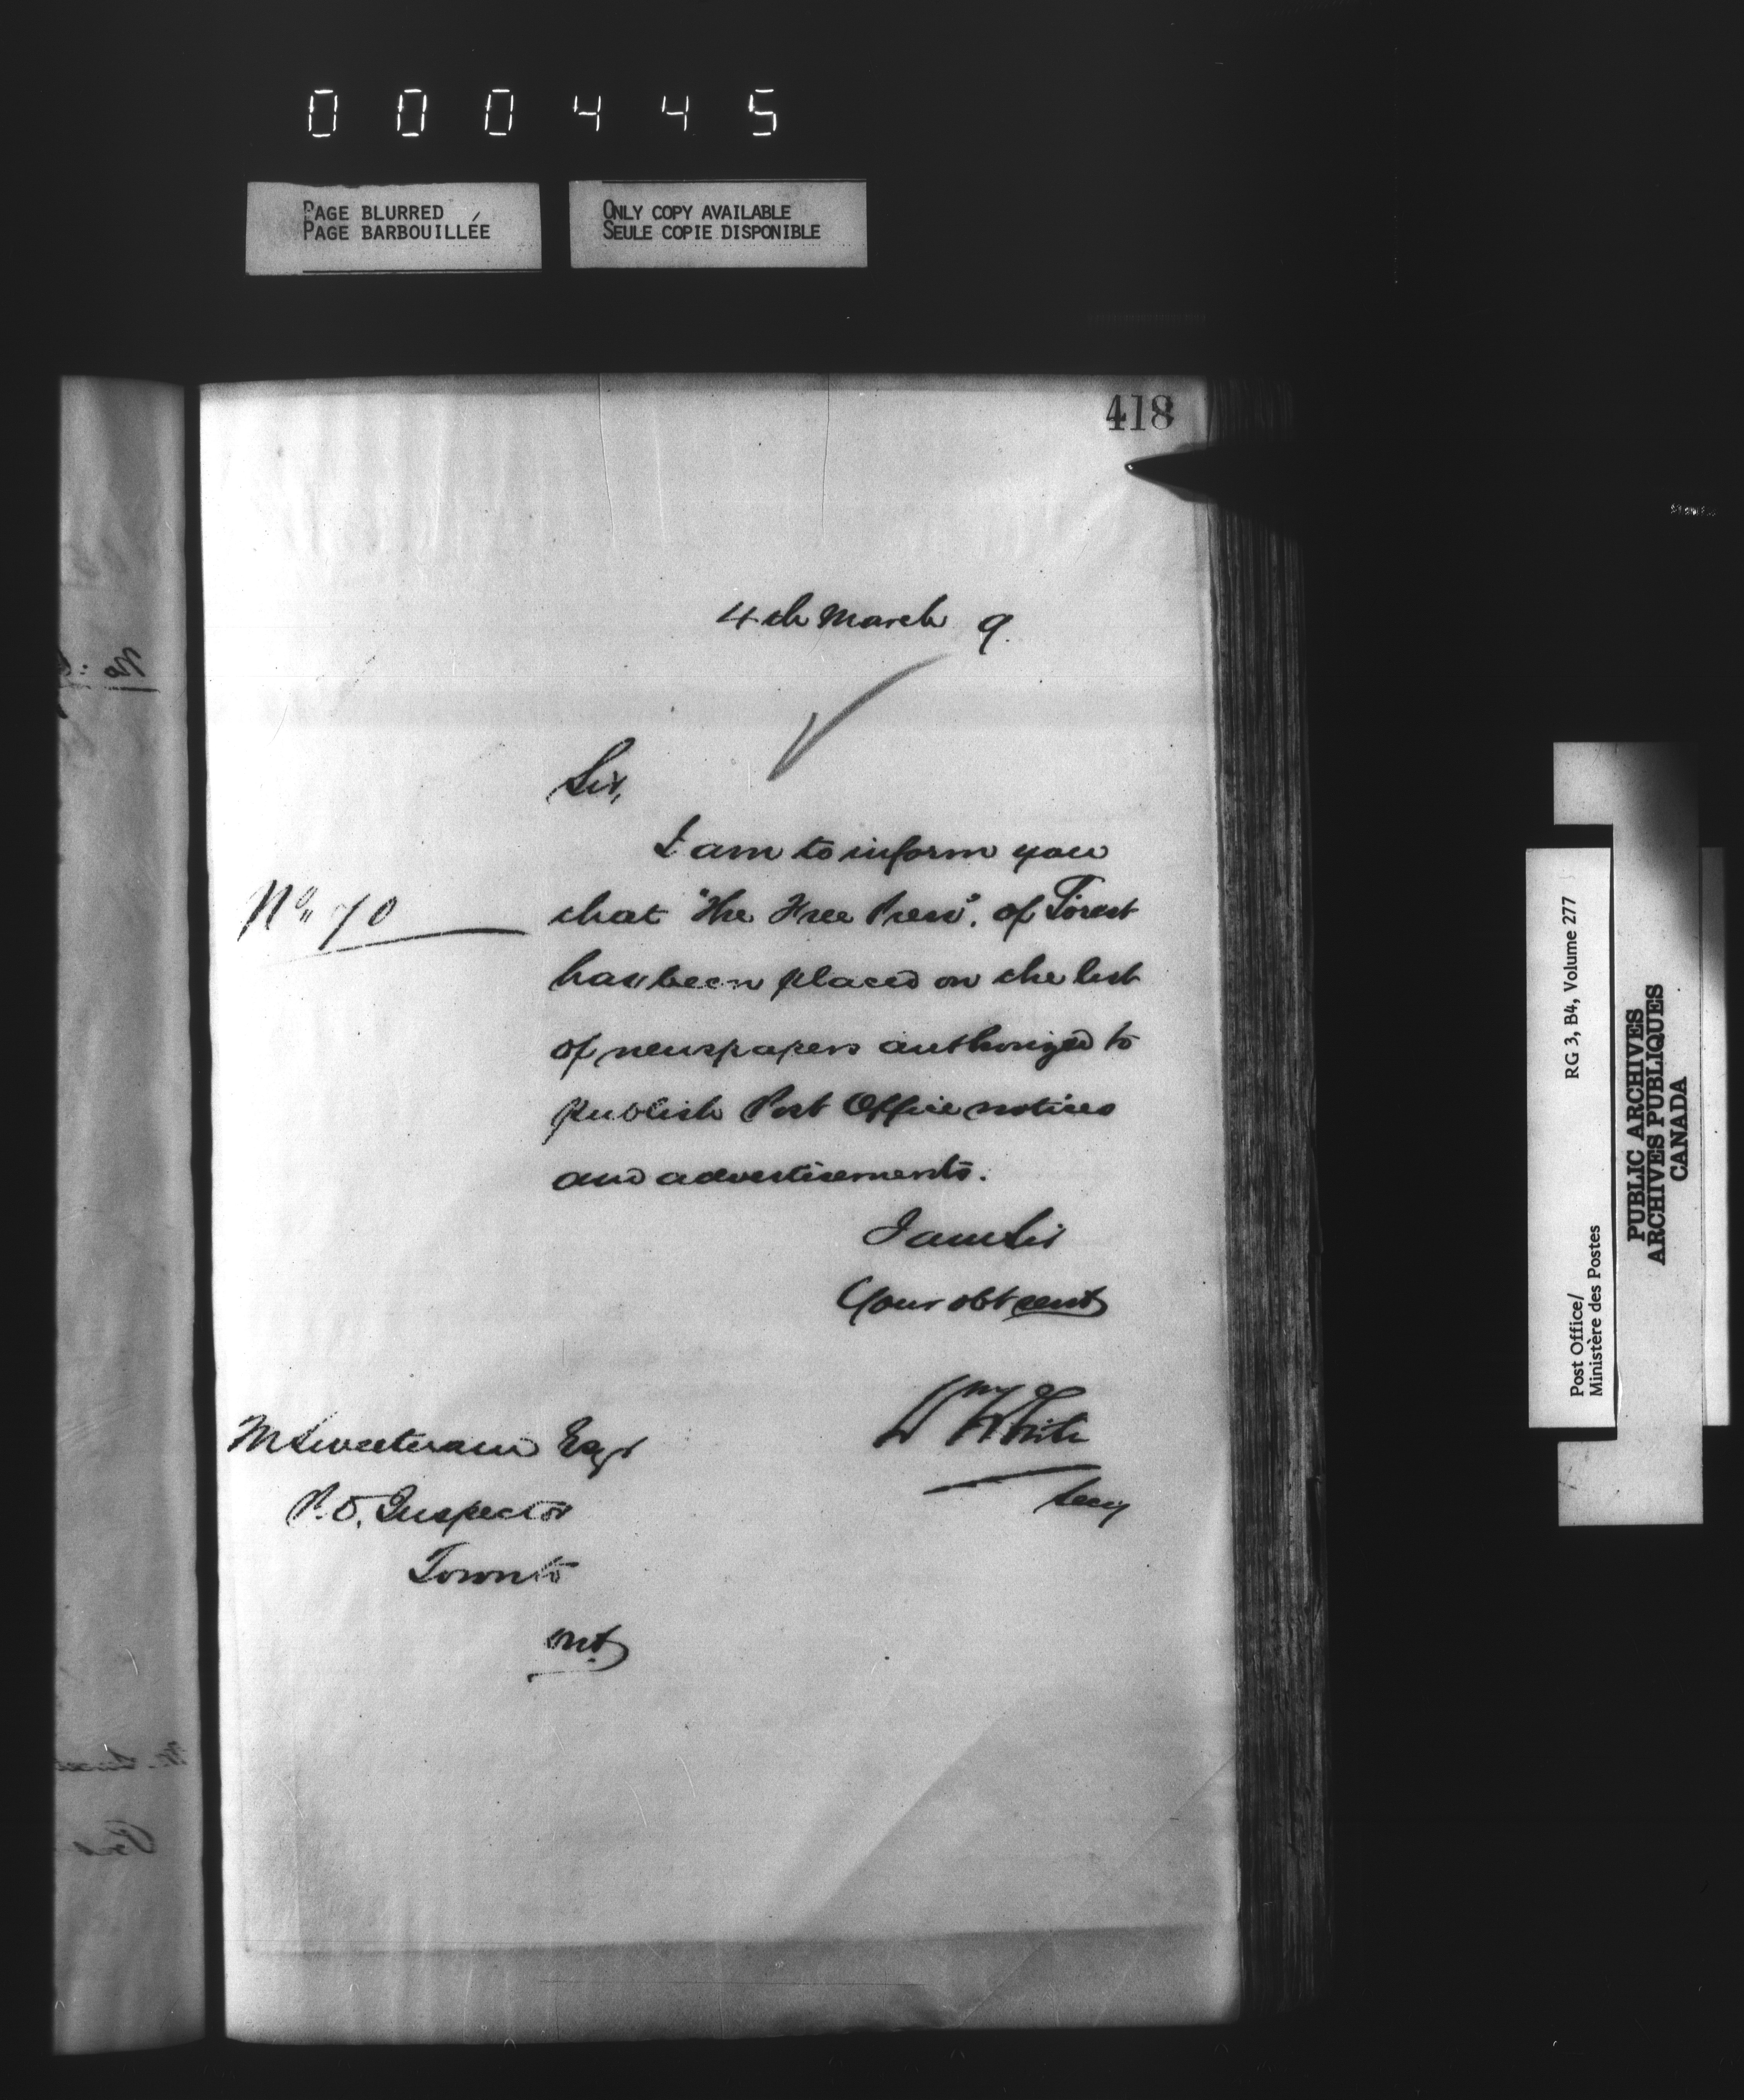 000445
PAGE BLURRED
PAGE BARBOUILLÉE
ONLY COPY AVAILABLE
SEULE COPIE DISPONIBLE
418
4th March 9.
Sir,
I am to inform you
No. 70
that "The Free Press". of Forest
has been placed on the list
of newspapers authorized to
publish Post Office notices
and advertisements.
I am Sir
Your obt servt
Wm White
Secy
M Sweetnam Esqr
P.O. Inspector
Toronto
Ont.
Post Office/
Ministère des Postes
RG 3, B4, Volume 277
PUBLIC ARCHIVES
ARCHIVES PUBLIQUES
CANADA